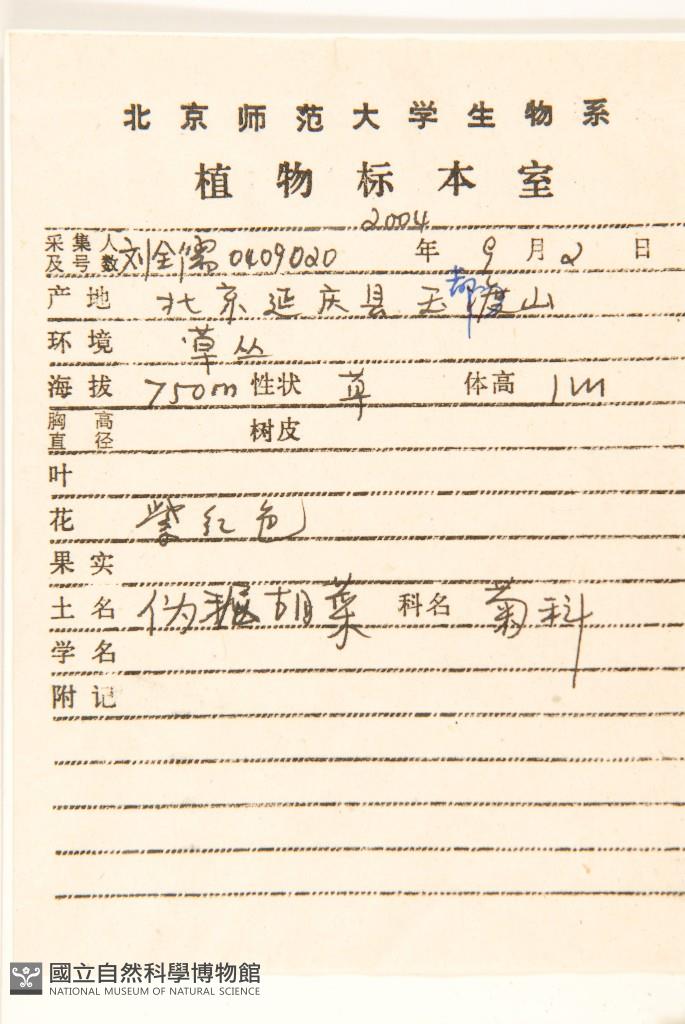 北京师范大学生物系
植物标本室
2004
采集人及号数 刘全儒 0409020 年 9 月 2 日
产地 北京延庆县玉都渡山
环境 草丛
海拔 750m 性状 草 体高 1m
胸高直径 树皮
叶
花 紫红色
果实
土名 伪泥胡菜 科名 菊科
学名
附记
國立自然科學博物館
NATIONAL MUSEUM OF NATURAL SCIENCE